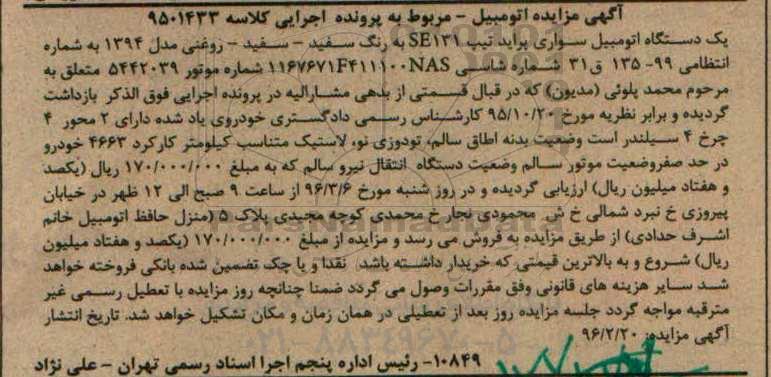 آگهی مزایده اتومبیل – مربوط به پرونده اجرایی کلاسه ۹۵۰۱۴۳۳
یک دستگاه اتومبیل سواری پراید تیپ SE۱۳۱ به رنگ سفید - سفید - روغنی مدل ۱۳۹۴ به شماره
انتظامی ۹۹- ۱۳۵ ق۳۱ شماره شاسی NAS۴۱۱۱۰۰F۱۱۶۷۶۷۱ شماره موتور ۵۴۴۲۰۳۹ متعلق به
مرحوم محمد پلوئی (مدیون) که در قبال قسمتی از بدهی مشارالیه در پرونده اجرایی فوق الذکر بازداشت
گردیده و برابر نظریه مورخ ۹۵/۱۰/۲۰ کارشناس رسمی دادگستری خودروی یاد شده دارای ۲ محور ۴
چرخ ۴ سیلندر است وضعیت بدنه اطاق سالم، تودوزی نو، لاستیک متناسب کیلومتر کارکرد ۴۶۶۳ خودرو
در حد صفروضعیت موتور سالم وضعیت دستگاه انتقال نیرو سالم که به مبلغ ۱۷۰/۰۰۰/۰۰۰ ریال (یکصد
و هفتاد میلیون ریال) ارزیابی گردیده و در روز شنبه مورخ ۹۶/۳/۶ از ساعت ۹ صبح الی ۱۲ ظهر در خیابان
پیروزی خ نبرد شمالی خ ش محمودی نجار خ محمدی کوچه مجیدی پلاک ۵ (منزل حافظ اتومبیل خانم
اشرف حدادی) از طریق مزایده به فروش می رسد و مزایده از مبلغ ۱۷۰/۰۰۰/۰۰۰ (یکصد و هفتاد میلیون
ریال) شروع و به بالاترین قیمتی که خریدار داشته باشد نقدا و یا چک تضمین شده بانکی فروخته خواهد
شد سایر هزینه های قانونی وفق مقررات وصول می گردد ضمنا چنانچه روز مزایده با تعطیل رسمی غیر
مترقبه مواجه گردد جلسه مزایده روز بعد از تعطیلی در همان زمان و مکان تشکیل خواهد شد. تاریخ انتشار
آگهی مزایده: ۹۶/۲/۲۰
۱۰۸۴۹- رئیس اداره پنجم اجرا اسناد رسمی تهران - علی نژاد
۰۲۱-۸۸۳۴۹۶۷۰-۵